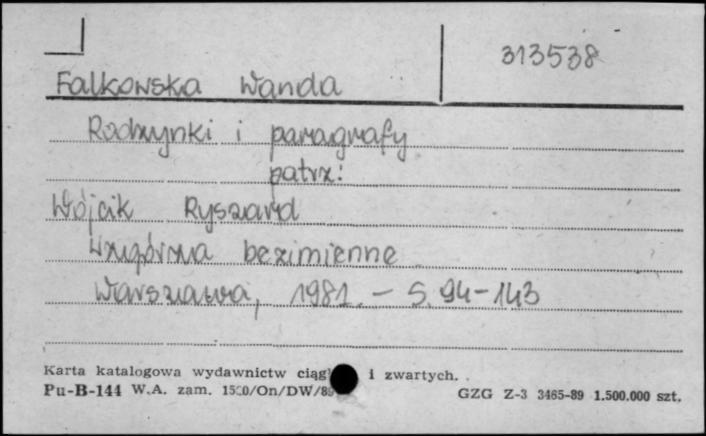 313538
Falkowska Wanda
Rodzynki i paragrafy
patrz:
Wójcik Ryszard
Wzgórza bezimienne
Warszawa, 1981. - S. 94-143
Karta katalogowa wydawnictw i zwartych.
Pu-B-144 W.A. zam. GZG Z-3 3465-89 1.500.000 szt.